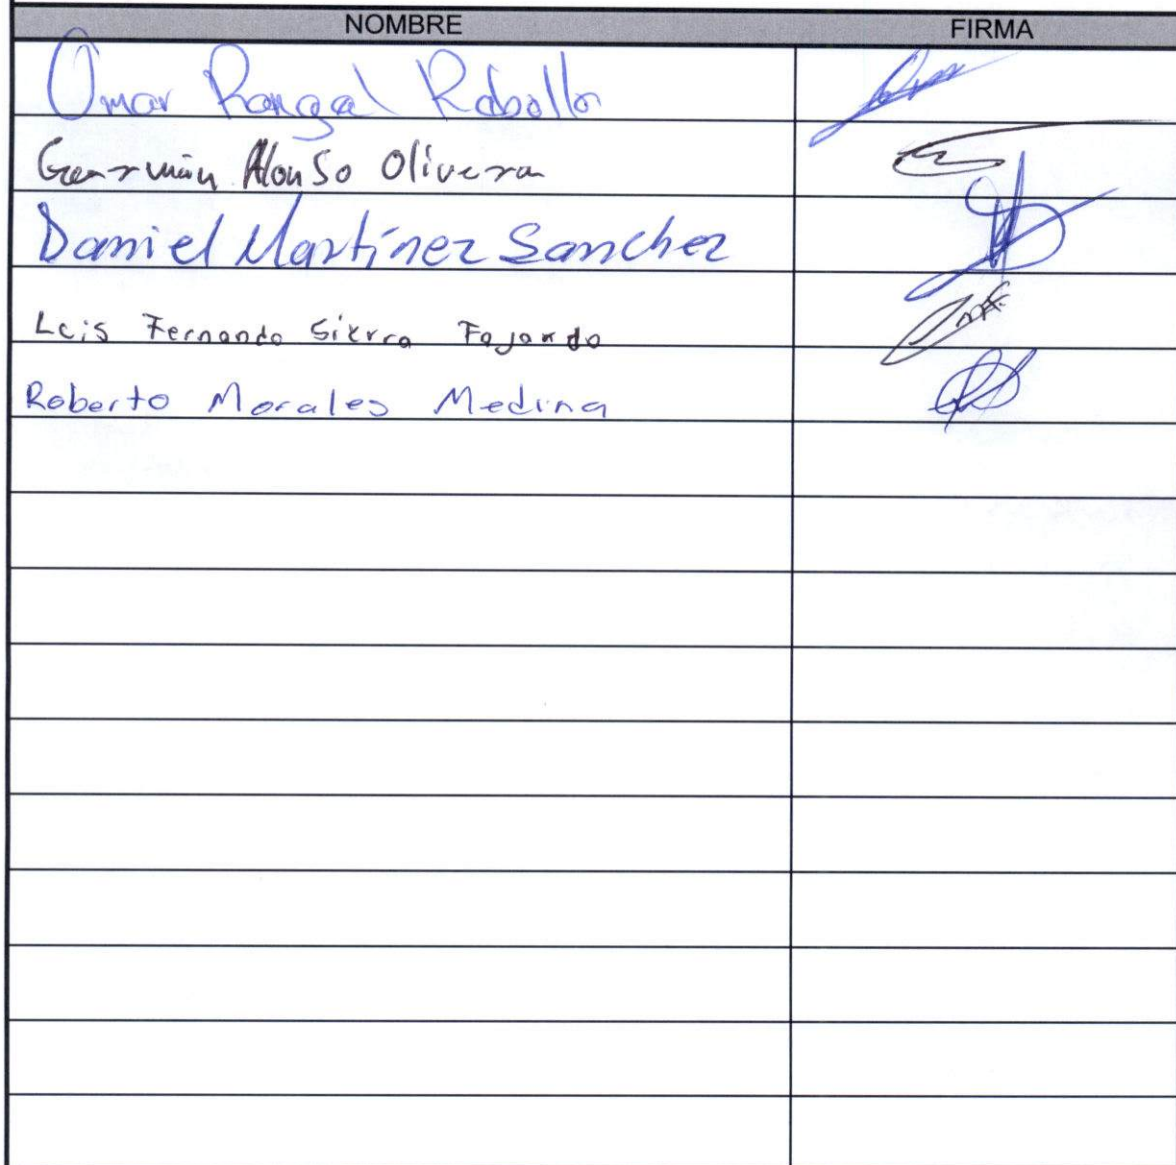 NOMBRE FIRMA
Omar Rangel Rebollo
Germán Alonso Olivera
Daniel Martínez Sanchez
Luis Fernando Sierra Fajardo
Roberto Morales Medina